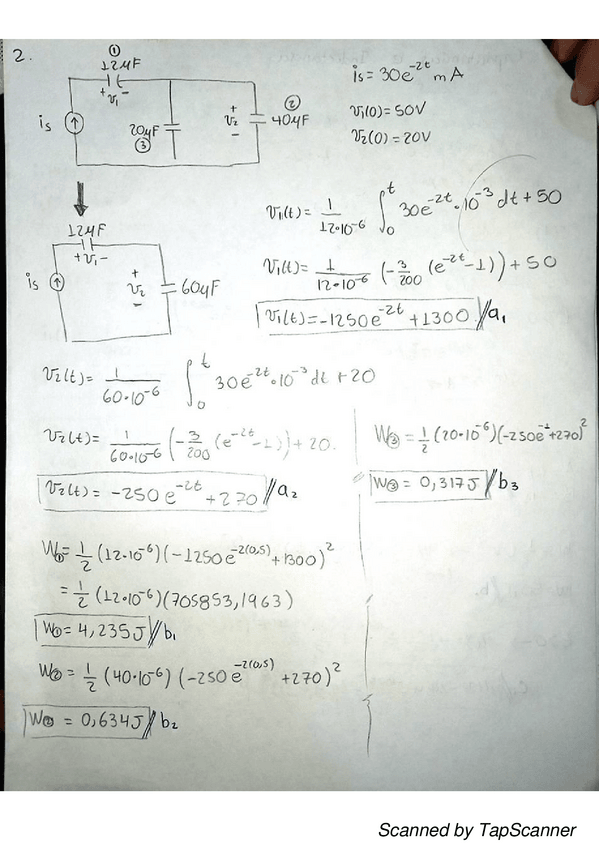 2.
①
12μF
+ v₁ -
is
20μF
③
+
v₂
-
②
40μF
is = 30e^-2t mA
v₁(0) = 50V
v₂(0) = 20V
12μF
+ v₁ -
is
+
v₂
-
60μF
v₁(t) = 1/12·10^-6 ∫₀^t 30e^-2t·10^-3 dt + 50
v₁(t) = 1/12·10^-6 (-3/200 (e^-2t - 1)) + 50
v₁(t) = -1250e^-2t + 1300 // a₁
v₂(t) = 1/60·10^-6 ∫₀^t 30e^-2t·10^-3 dt + 20
v₂(t) = 1/60·10^-6 (-3/200 (e^-2t - 1)) + 20.
v₂(t) = -250e^-2t + 270 // a₂
W③ = 1/2 (20·10^-6)(-250e^-1 + 270)²
W③ = 0,317J // b₃
W① = 1/2 (12·10^-6)(-1250e^-2(0,5) + 1300)²
= 1/2 (12·10^-6)(705853,1963)
W① = 4,235J // b₁
W② = 1/2 (40·10^-6)(-250e^-2(0,5) + 270)²
W② = 0,634J // b₂
Scanned by TapScanner